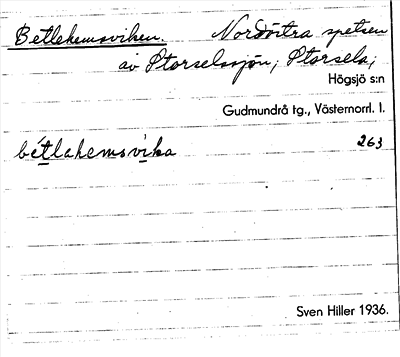 Betlehemsviken. Nordöstra spetsen
av Storselssjön, Storsela,
Högsjö s:n
Gudmundrå tg., Västernorrl. l.
bétlahemsvika 263
Sven Hiller 1936.